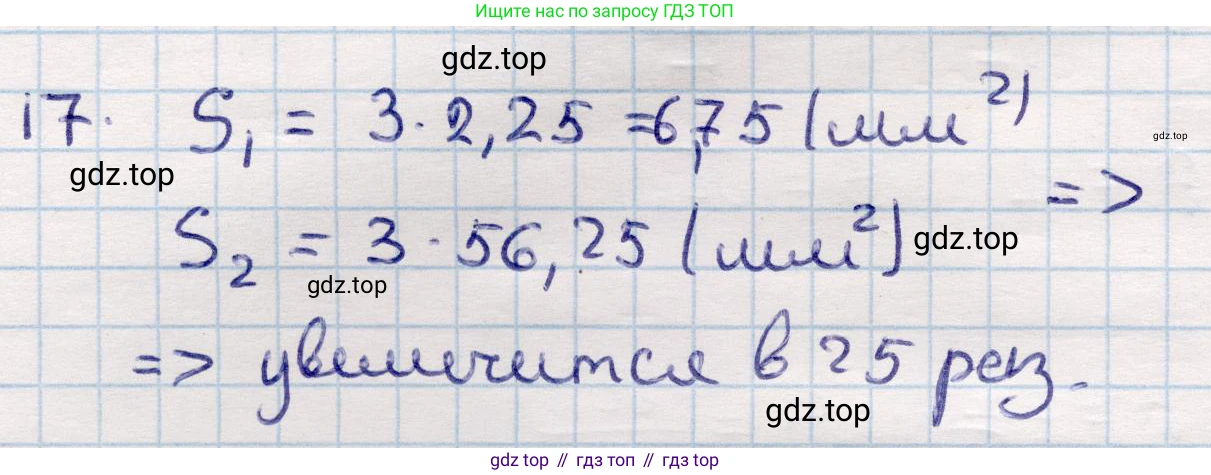 Ищите нас по запросу ГДЗ ТОП
gdz.top
17. S₁ = 3 · 2,25 = 6,75 (мм²)
gdz.top
gdz.top
=>
S₂ = 3 · 56,25 (мм²)
gdz.top
gdz.top
=> увеличится в 25 раз.
gdz.top
gdz top // гдз топ // gdz top